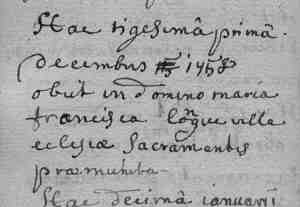 Hac vigesimâ primâ
decembris 1758
obiit in domino maria
francisca longue ville
eclesiæ Sacramentis
præmunita
Hac decimâ ianuarii